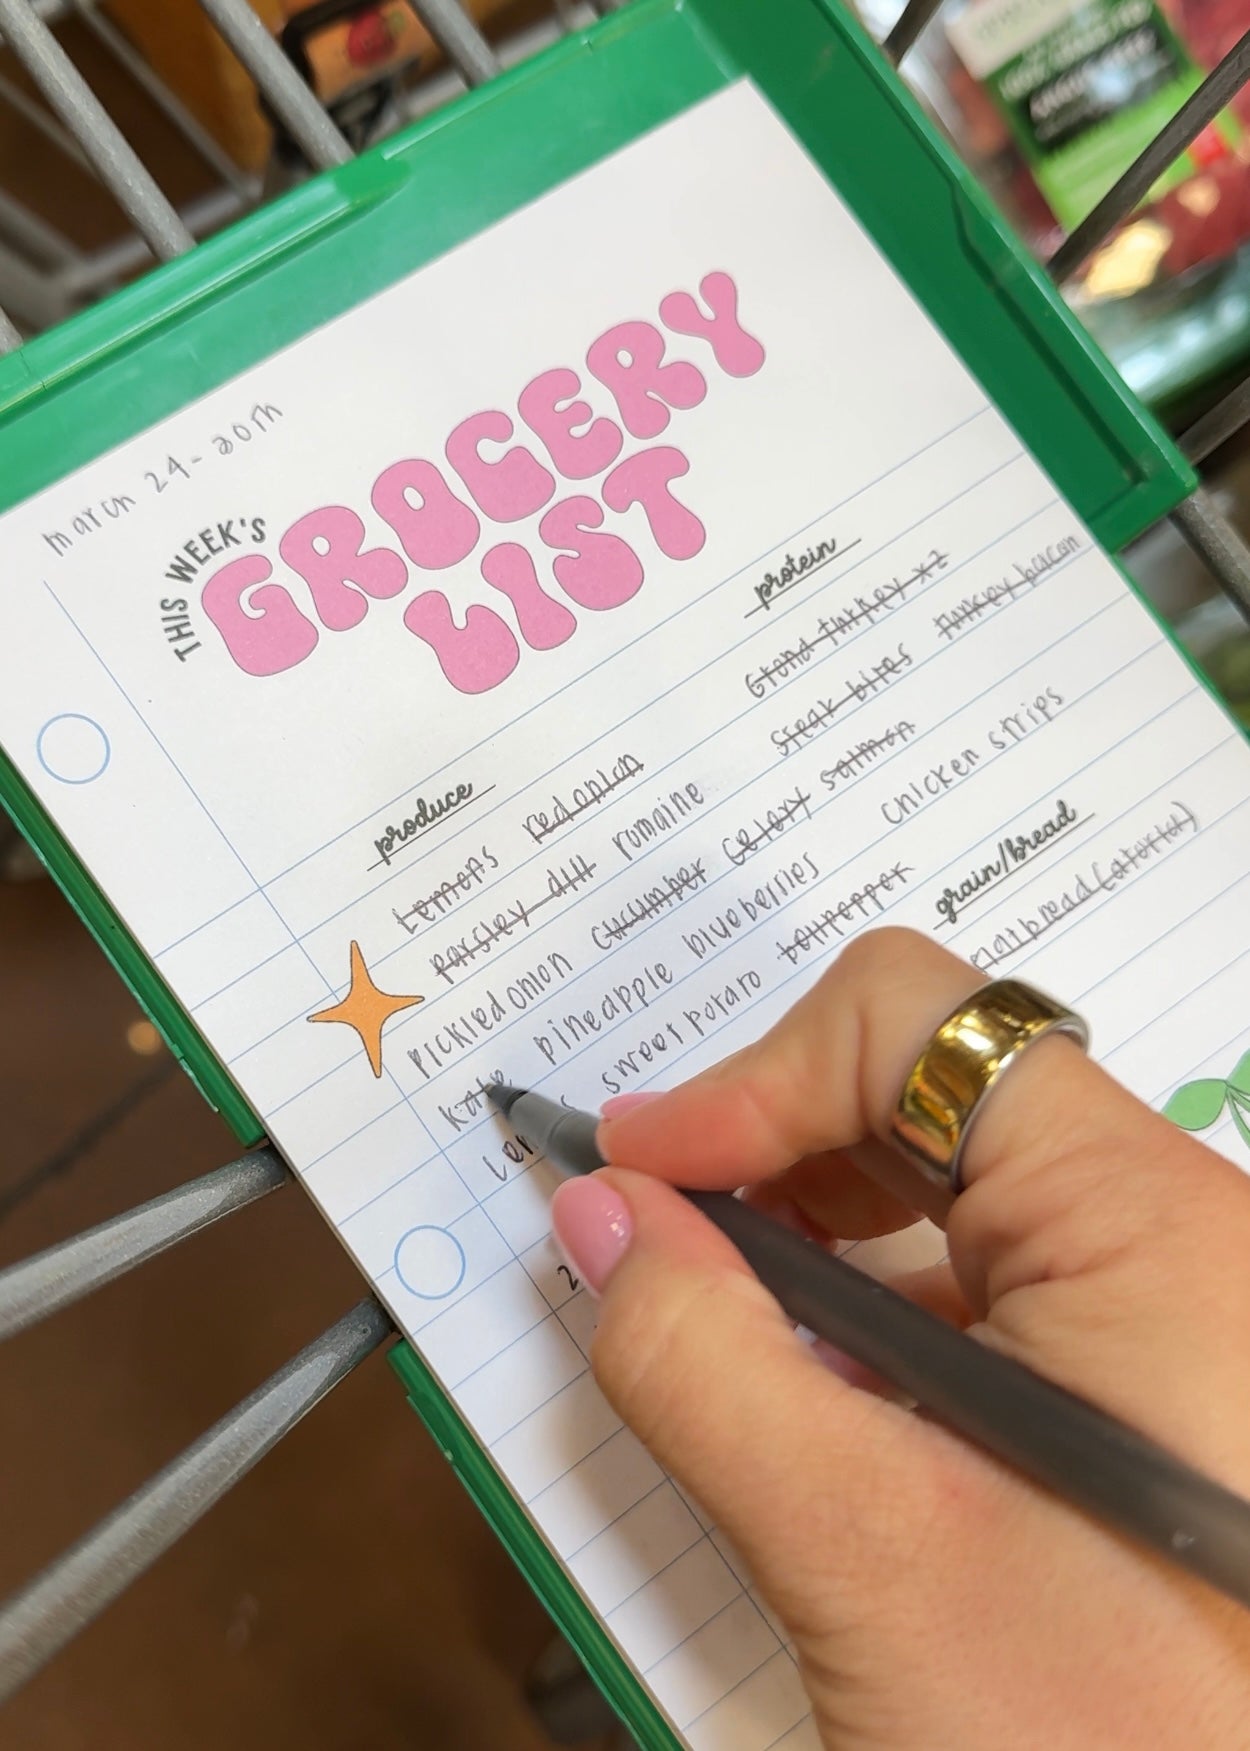 march 24-30th
THIS WEEK'S
GROCERY
LIST
produce
Lemons red onion
parsley dill romaine
pickled onion cucumber celery
kale pineapple blueberries
sweet potato bell pepper
protein
Grond turkey x2
steak bites turkey bacon
salmon
chicken strips
grain/bread